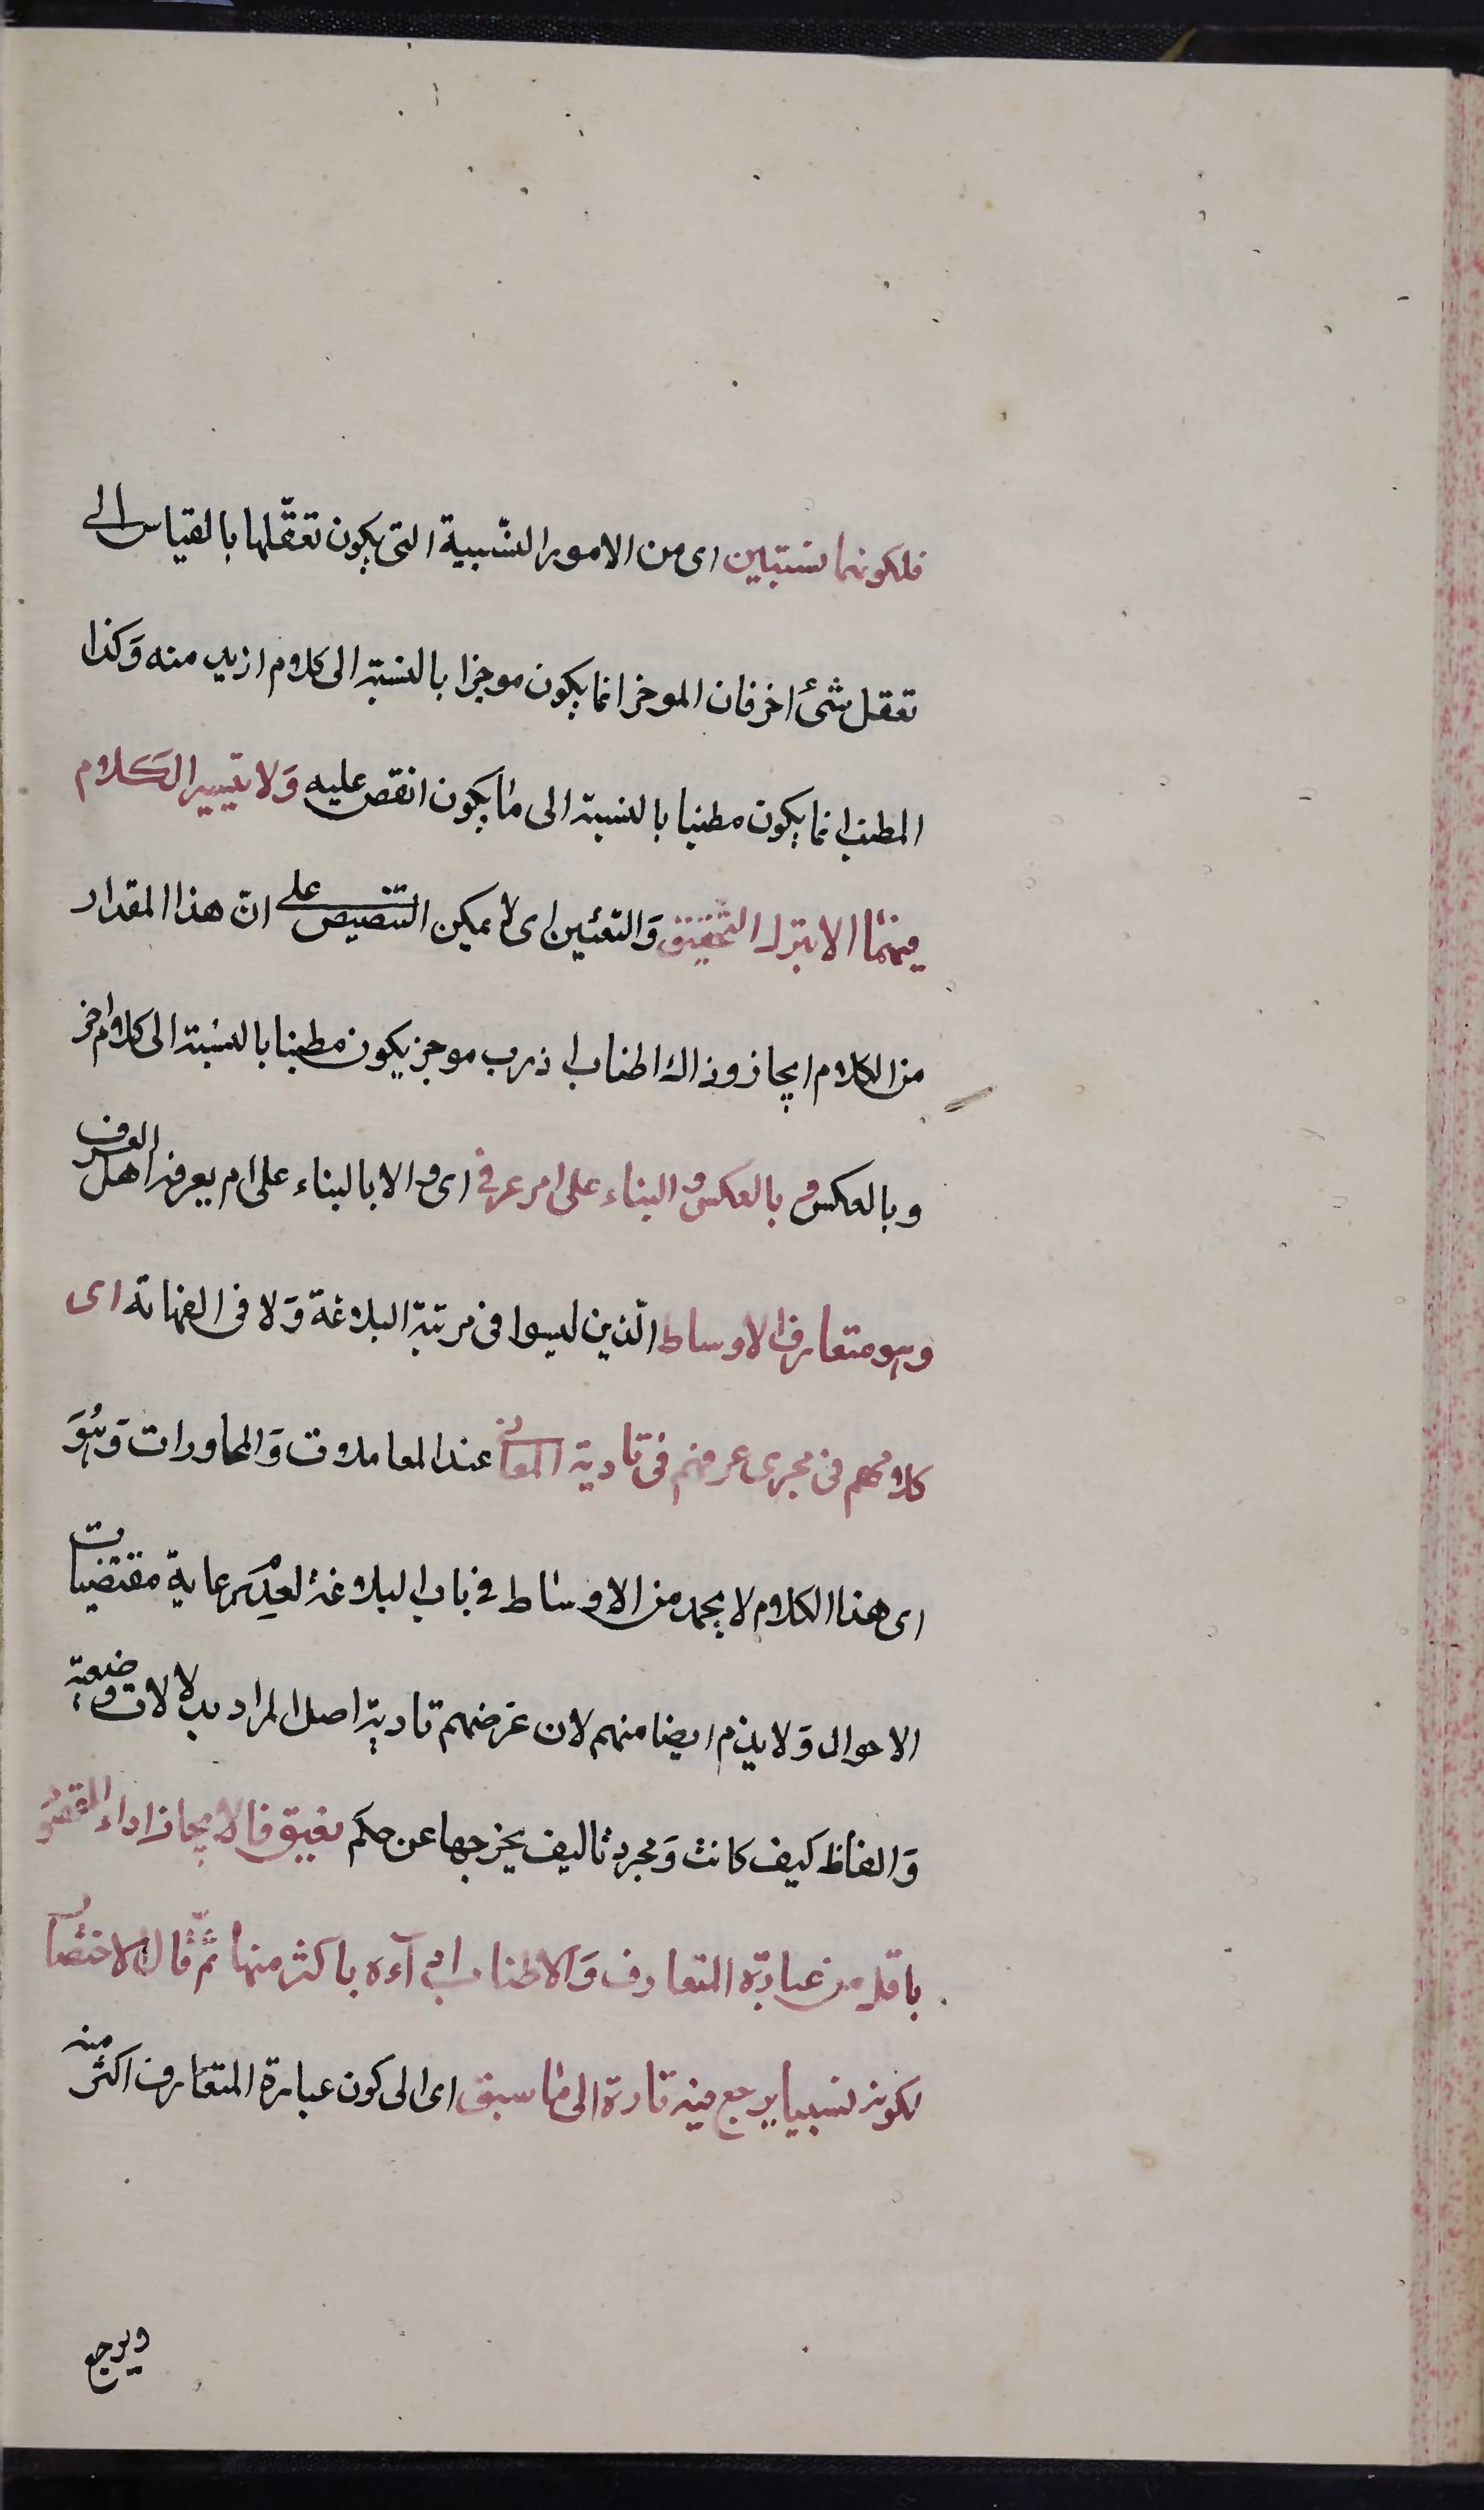 فلكونهما نسبيين اى من الامور النّسبية التى يكون تعقّلها بالقياس الى
تعقل شئ اخر فان الموجز انما يكون موجزا بالنسبة الى كلام ازيد منه وَكذا
المطنب انما يكون مطنبا بالنسبة الى ما يكون انقص عليه وَلا يتيسر الكلام
فيهما الا بترك التحقيق وَالتعيين اى لا يمكن التنصيص على انّ هذا المقدار
من الكلام ايجاز وذاك اطناب اذ رب موجز يكون مطنبا بالنسبة الى كلام اخر
وبالعكس و بالعكس و البناء على امر عرفى اى و الا بالبناء على ام يعرفه اهل العرف
وهو متعارف الاوساط الّذين ليسوا فى مرتبة البلاغة وَلا فى الفهاهة اى
كلامهم فى مجرى عرفهم فى تادية المعانى عند المعاملات وَالمحاورات وَهُوَ
اى هذا الكلام لا يحمد من الاوساط فى باب البلاغة لعدم رعاية مقتضيات
الاحوال وَلا يذم ايضا منهم لان غرضهم تادية اصل المراد بدلالات وضعية
وَالفاظ كيف كانت وَمجرد تاليف يخرجها عن حكم نعيق فالايجاز اداء المقصود
باقل من عبارة المتعارف وَالاطناب اداءه باكثر منها ثمّ قال الاختصار
لكونه نسبيا يرجع فيه تارة الى ما سبق اى الى كون عبارة المتعارف اكثر منه
ويرجع